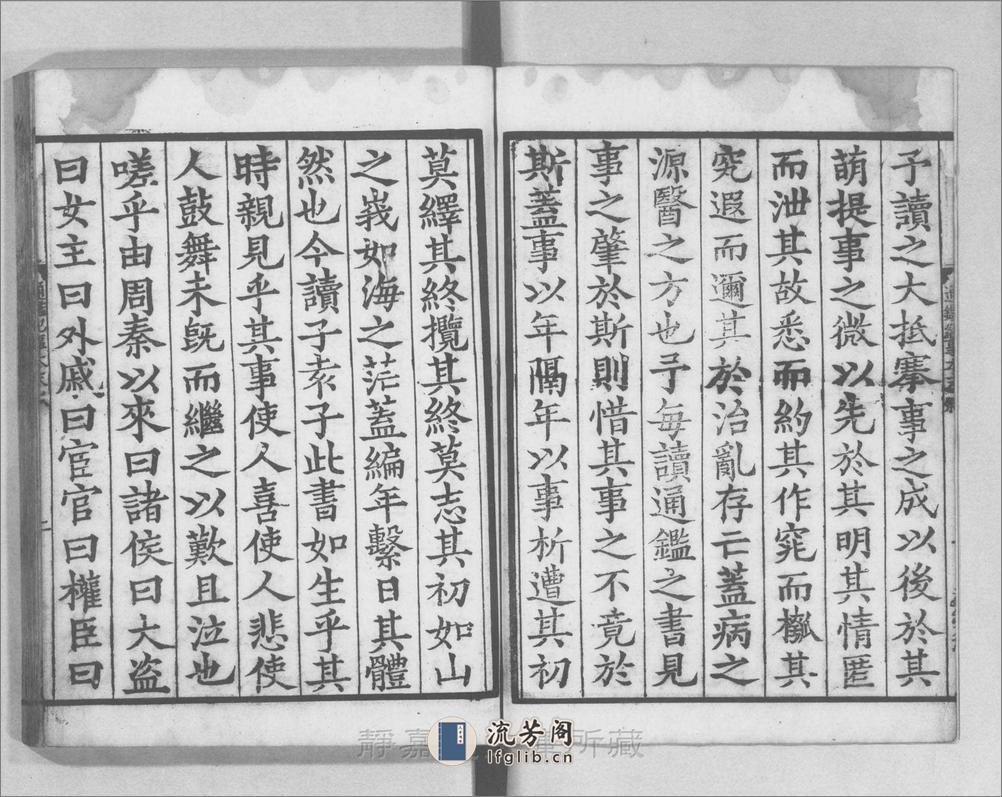 子讀之大抵搴事之成以後於其
萌提事之微以先於其明其情匿
而泄其故悉而約其作窕而櫾其
究遐而邇其於治亂存亡蓋病之
源醫之方也予每讀通鑑之書見
事之肇於斯則惜其事之不竟於
斯蓋事以年隔年以事析遭其初
莫繹其終攬其終莫志其初如山
之峩如海之茫蓋編年繫日其體
然也今讀子袁子此書如生乎其
時親見乎其事使人喜使人悲使
人鼓舞未旣而繼之以歎且泣也
嗟乎由周秦以來曰諸侯曰大盗
曰女主曰外戚曰宦官曰權臣曰
靜嘉
所藏
流芳阁
lfglib.cn